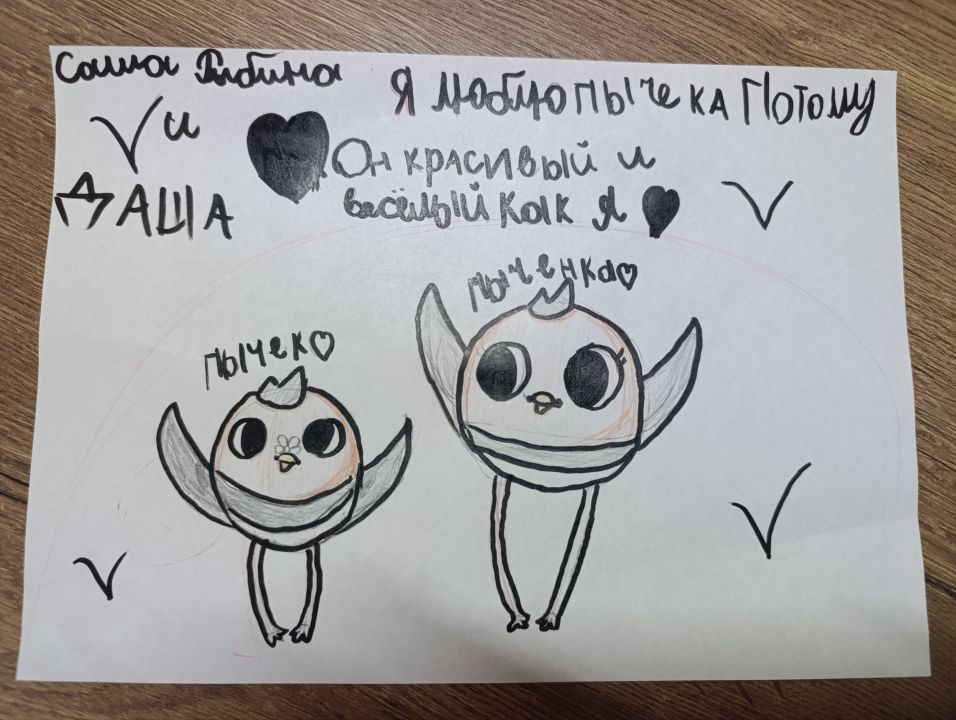 Саша Рябина
и
ДАША
Я люблю ПЫЧеКА Потому
Он красивый и
весёлый как я
ПЫЧЕНКА
ПЫЧЕК